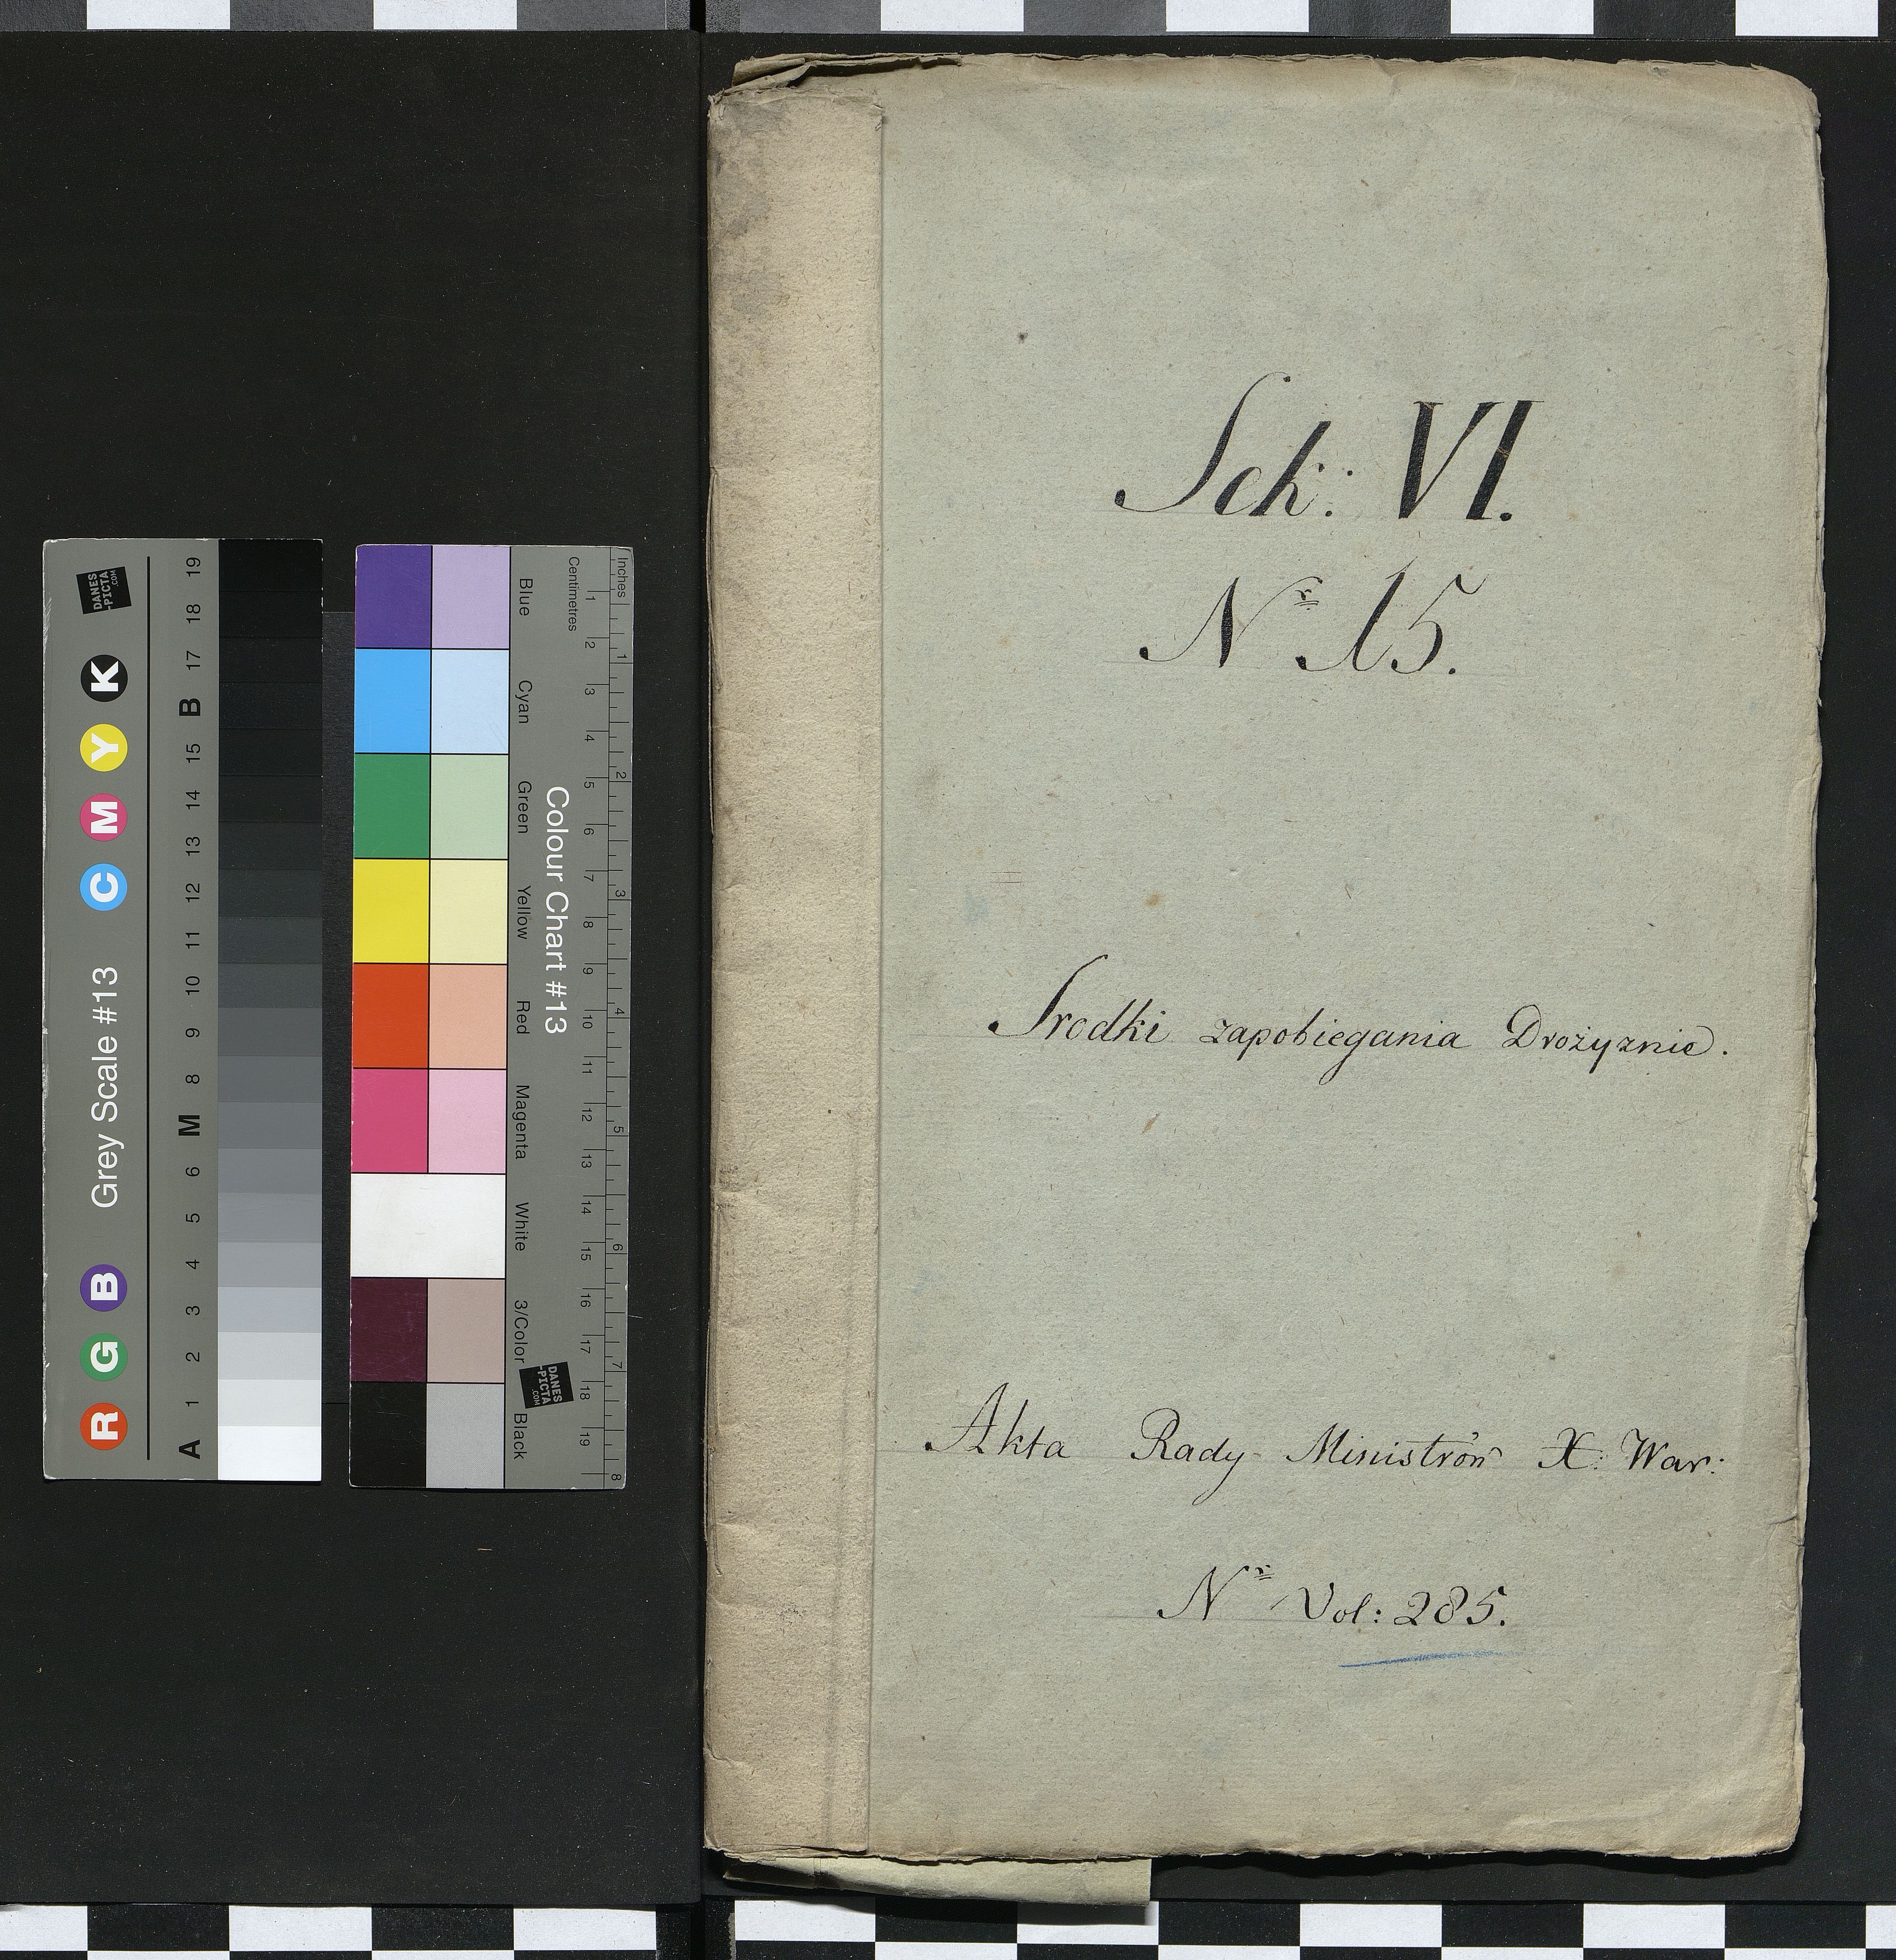 Sek: VI.
Nr 15.
Srodki zapobiegania Drożyznie.
Akta Rady Ministrów X: War:
Nr Vol: 285.
Grey Scale #13
R G B C M Y K
A 1 2 3 4 5 6 M 8 9 10 11 12 13 14 15 B 17 18 19
DANES
-PICTA
.COM
Colour Chart #13
Blue
Cyan
Green
Yellow
Red
Magenta
White
3/Color
Black
Inches
1 2 3 4 5 6 7 8
Centimetres
1 2 3 4 5 6 7 8 9 10 11 12 13 14 15 16 17 18 19
DANES
-PICTA
.COM